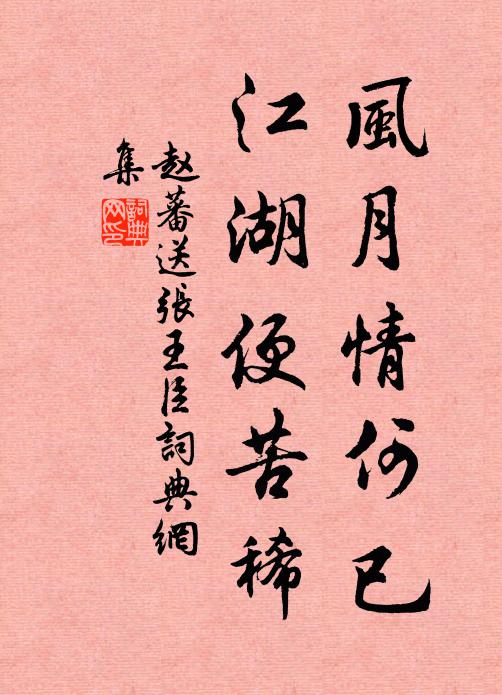 風月情何已
江湖便苦稀
赵蕃送張王臣詞典網
集
詞典網印